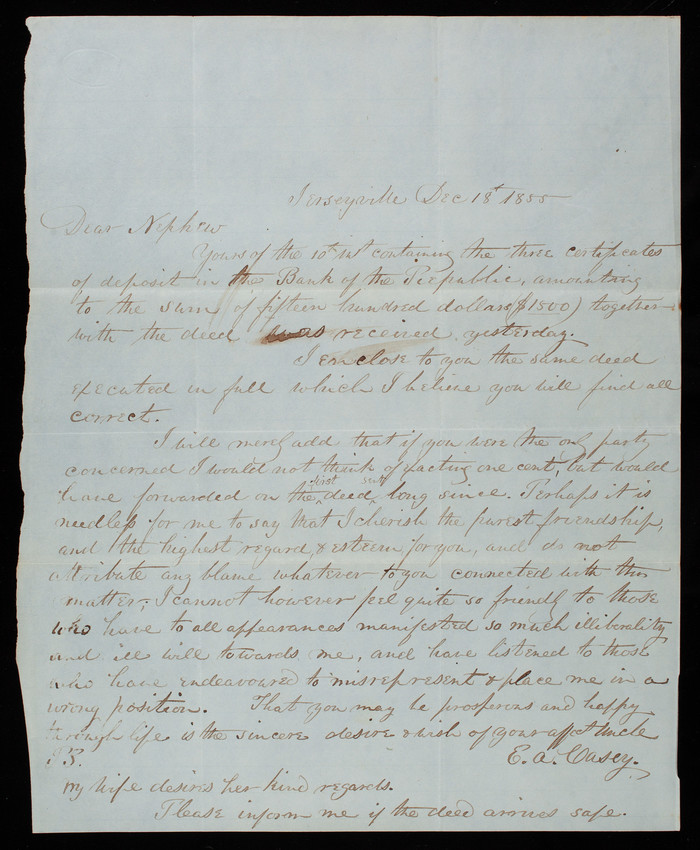 Jerseyville Dec 18th 1855
Dear Nephew
Yours of the 10th inst containing the three certificates
of deposit in the Bank of the Republic, amounting
to the sum of fifteen hundred dollars ($1500) together
with the deed was received yesterday.
I enclose to you the same deed
executed in full which I believe you will find all
correct.
I will merely add that if you were the only party
concerned I would not think of exacting one cent, but would
first sent
have forwarded on the deed long since. Perhaps it is
needless for me to say that I cherish the purest friendship,
and the highest regard & esteem for you, and do not
attribute any blame whatever to you connected with this
matter; I cannot however feel quite so friendly to those
who have to all appearances manifested so much illiberality
and ill will towards me, and have listened to those
who have endeavoured to misrepresent & place me in a
wrong position. That you may be prosperous and happy
through life is the sincere desire & wish of your affct Uncle
E. A. Casey.
My wife desires her kind regards.
Please inform me if the deed arrives safe.